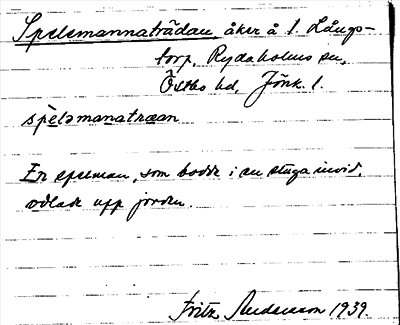 Spelemannaträdan, åker å 1. Långs-
torp, Rydaholms sn,
Östbo hd, Jönk. l.
spèləmanatræan
En speleman, som bodde i en stuga invid,
odlade upp jorden.
Fritz Andersson 1939.